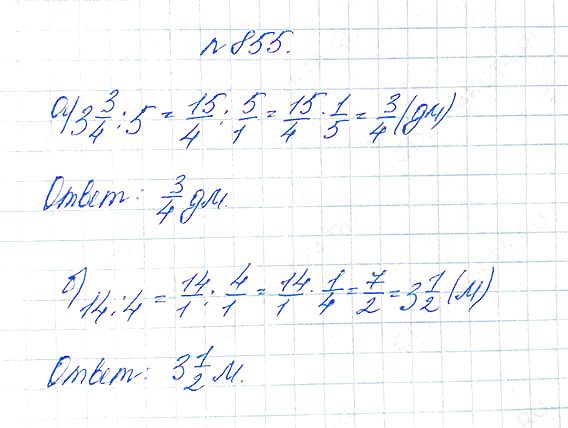 № 855.
а) 3 3/4 : 5 = 15/4 : 5/1 = 15/4 · 1/5 = 3/4 (дм)
Ответ: 3/4 дм.
б) 14 : 4 = 14/1 : 4/1 = 14/1 · 1/4 = 7/2 = 3 1/2 (м)
Ответ: 3 1/2 м.